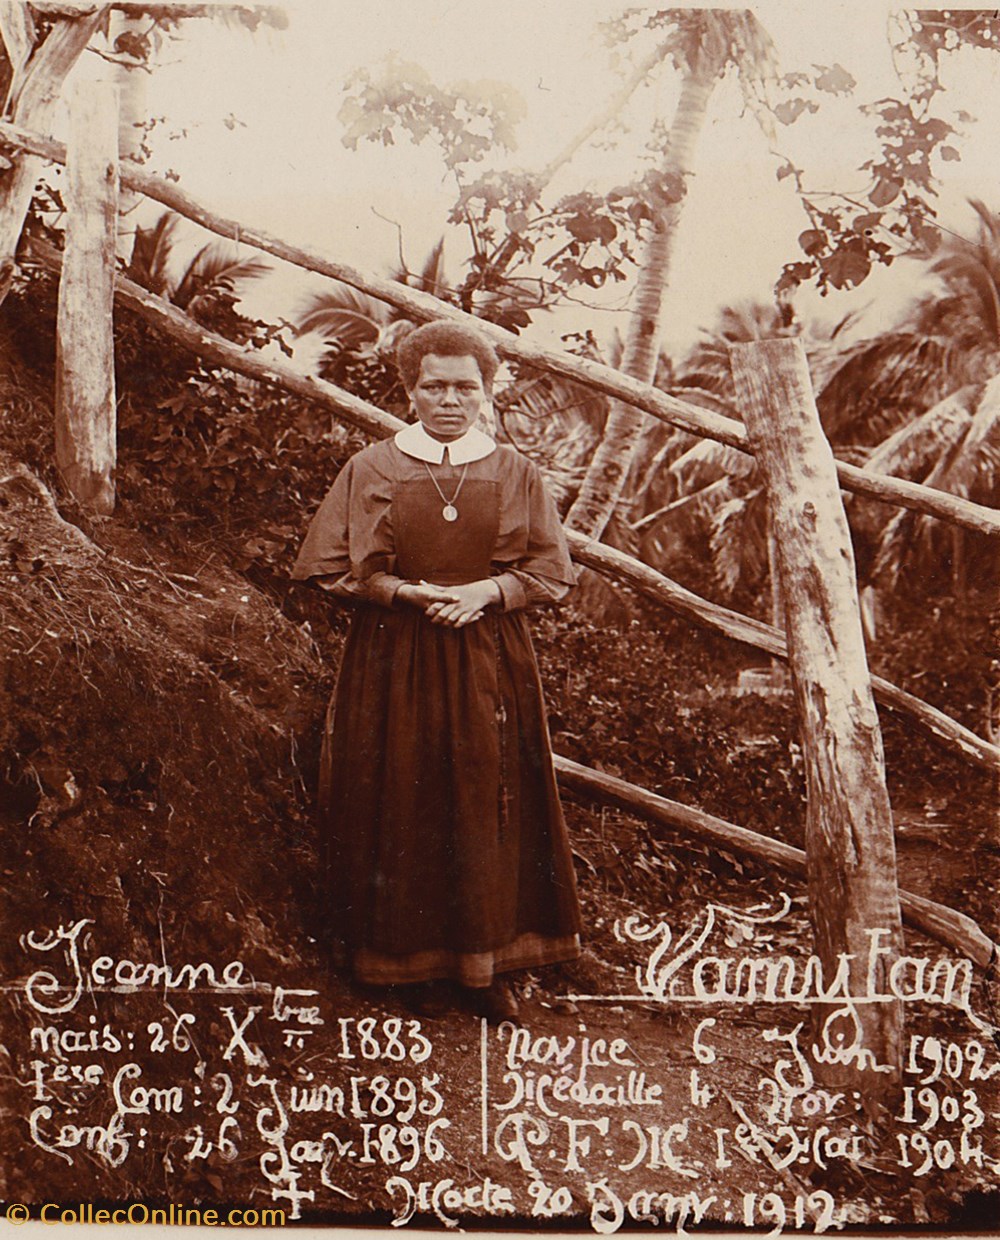 Jeanne Vamyfan
nais: 26 Xbre 1883
1ère Com: 2 Juin 1895
Conf: 26 Janv. 1896
Novice 6 Juin 1902
Médaille 4 Nov: 1903
P.F.M. 1er Mai 1904
† Morte 20 Janv: 1912
© CollecOnline.com